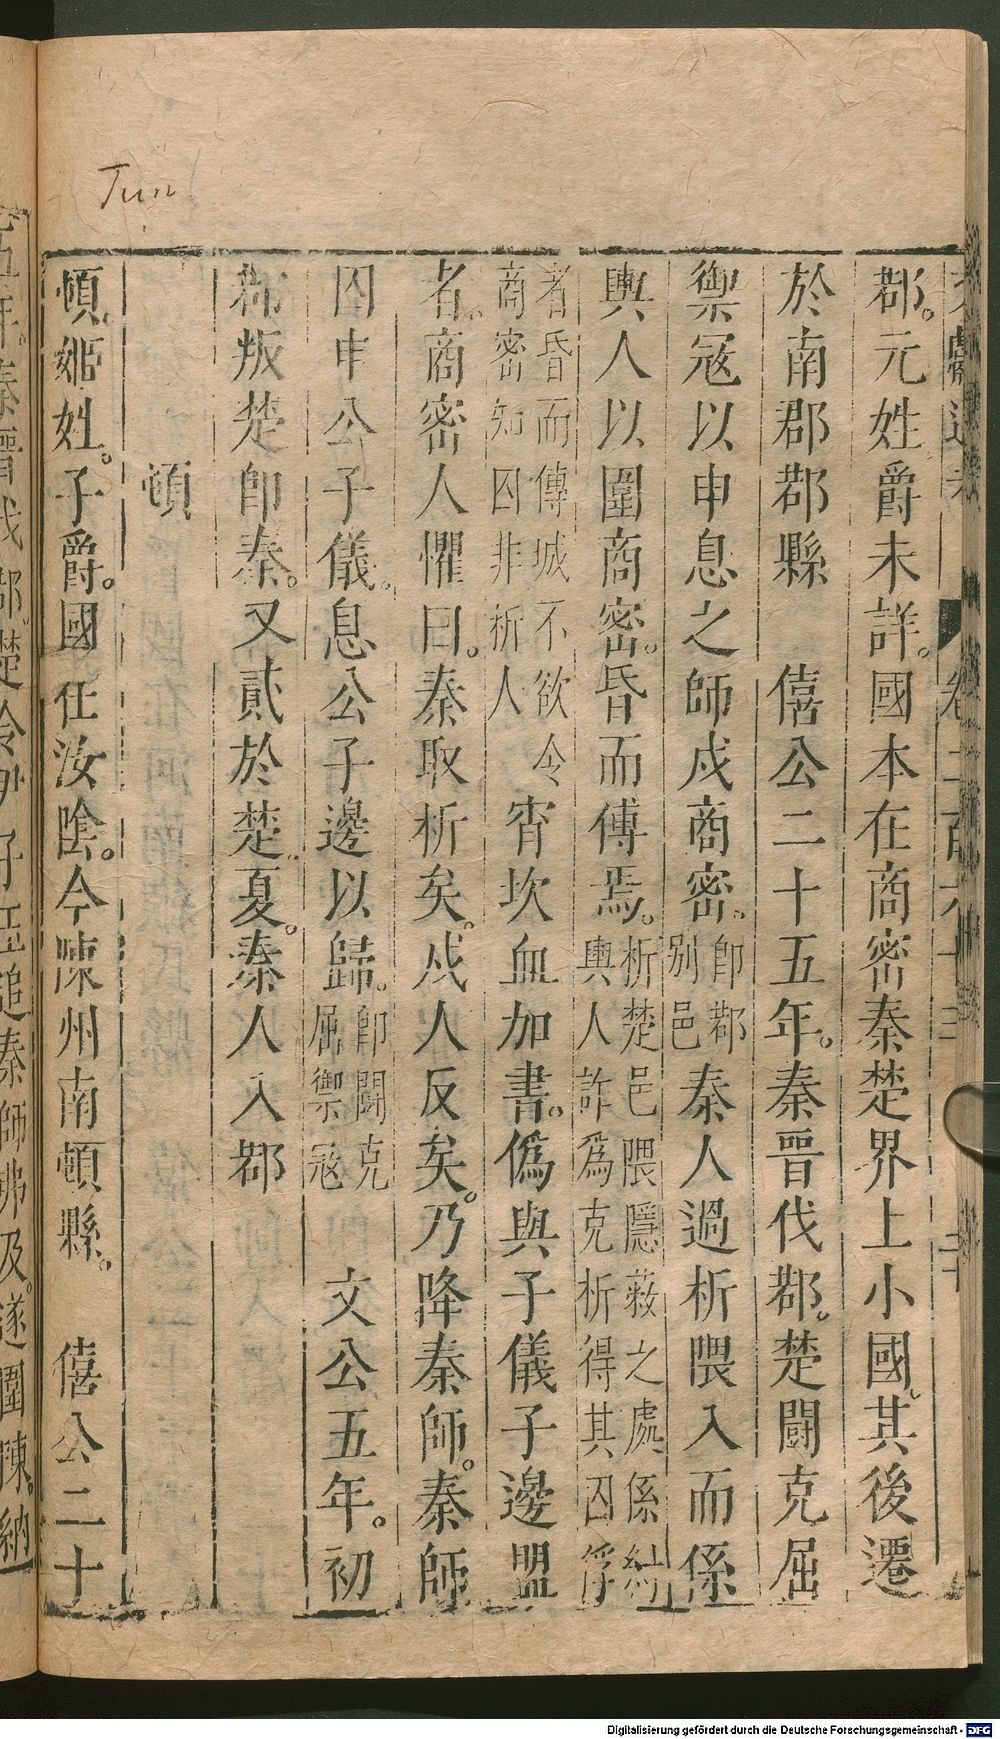 Tun
鄀。元姓爵未詳。國本在商密秦楚界上小國。其後遷
於南郡鄀縣　僖公二十五年。秦晉伐鄀。楚鬬克屈
禦冦以申息之師戍商密。卽鄀別邑秦人過析隈入而係
輿人以圍商密。昏而傅焉。析楚邑隈隱蔽之處係紲輿人詐爲克析得其囚俘
者昏而傅城不欲令商密知囚非析人宵坎血加書。僞與子儀子邊盟
者。商密人懼曰。秦取析矣。戍人反矣。乃降秦師。秦師
囚申公子儀。息公子邊以歸。卽鬬克屈禦冦　文公五年。初
鄀叛楚卽秦。又貳於楚。夏。秦人入鄀
頓
頓。姬姓。子爵。國在汝陰。今陳州南頓縣。　僖公二十
秦晉伐鄀。楚令尹子玉追秦師弗及。遂圍陳。納
Digitalisierung gefördert durch die Deutsche Forschungsgemeinschaft - DFG